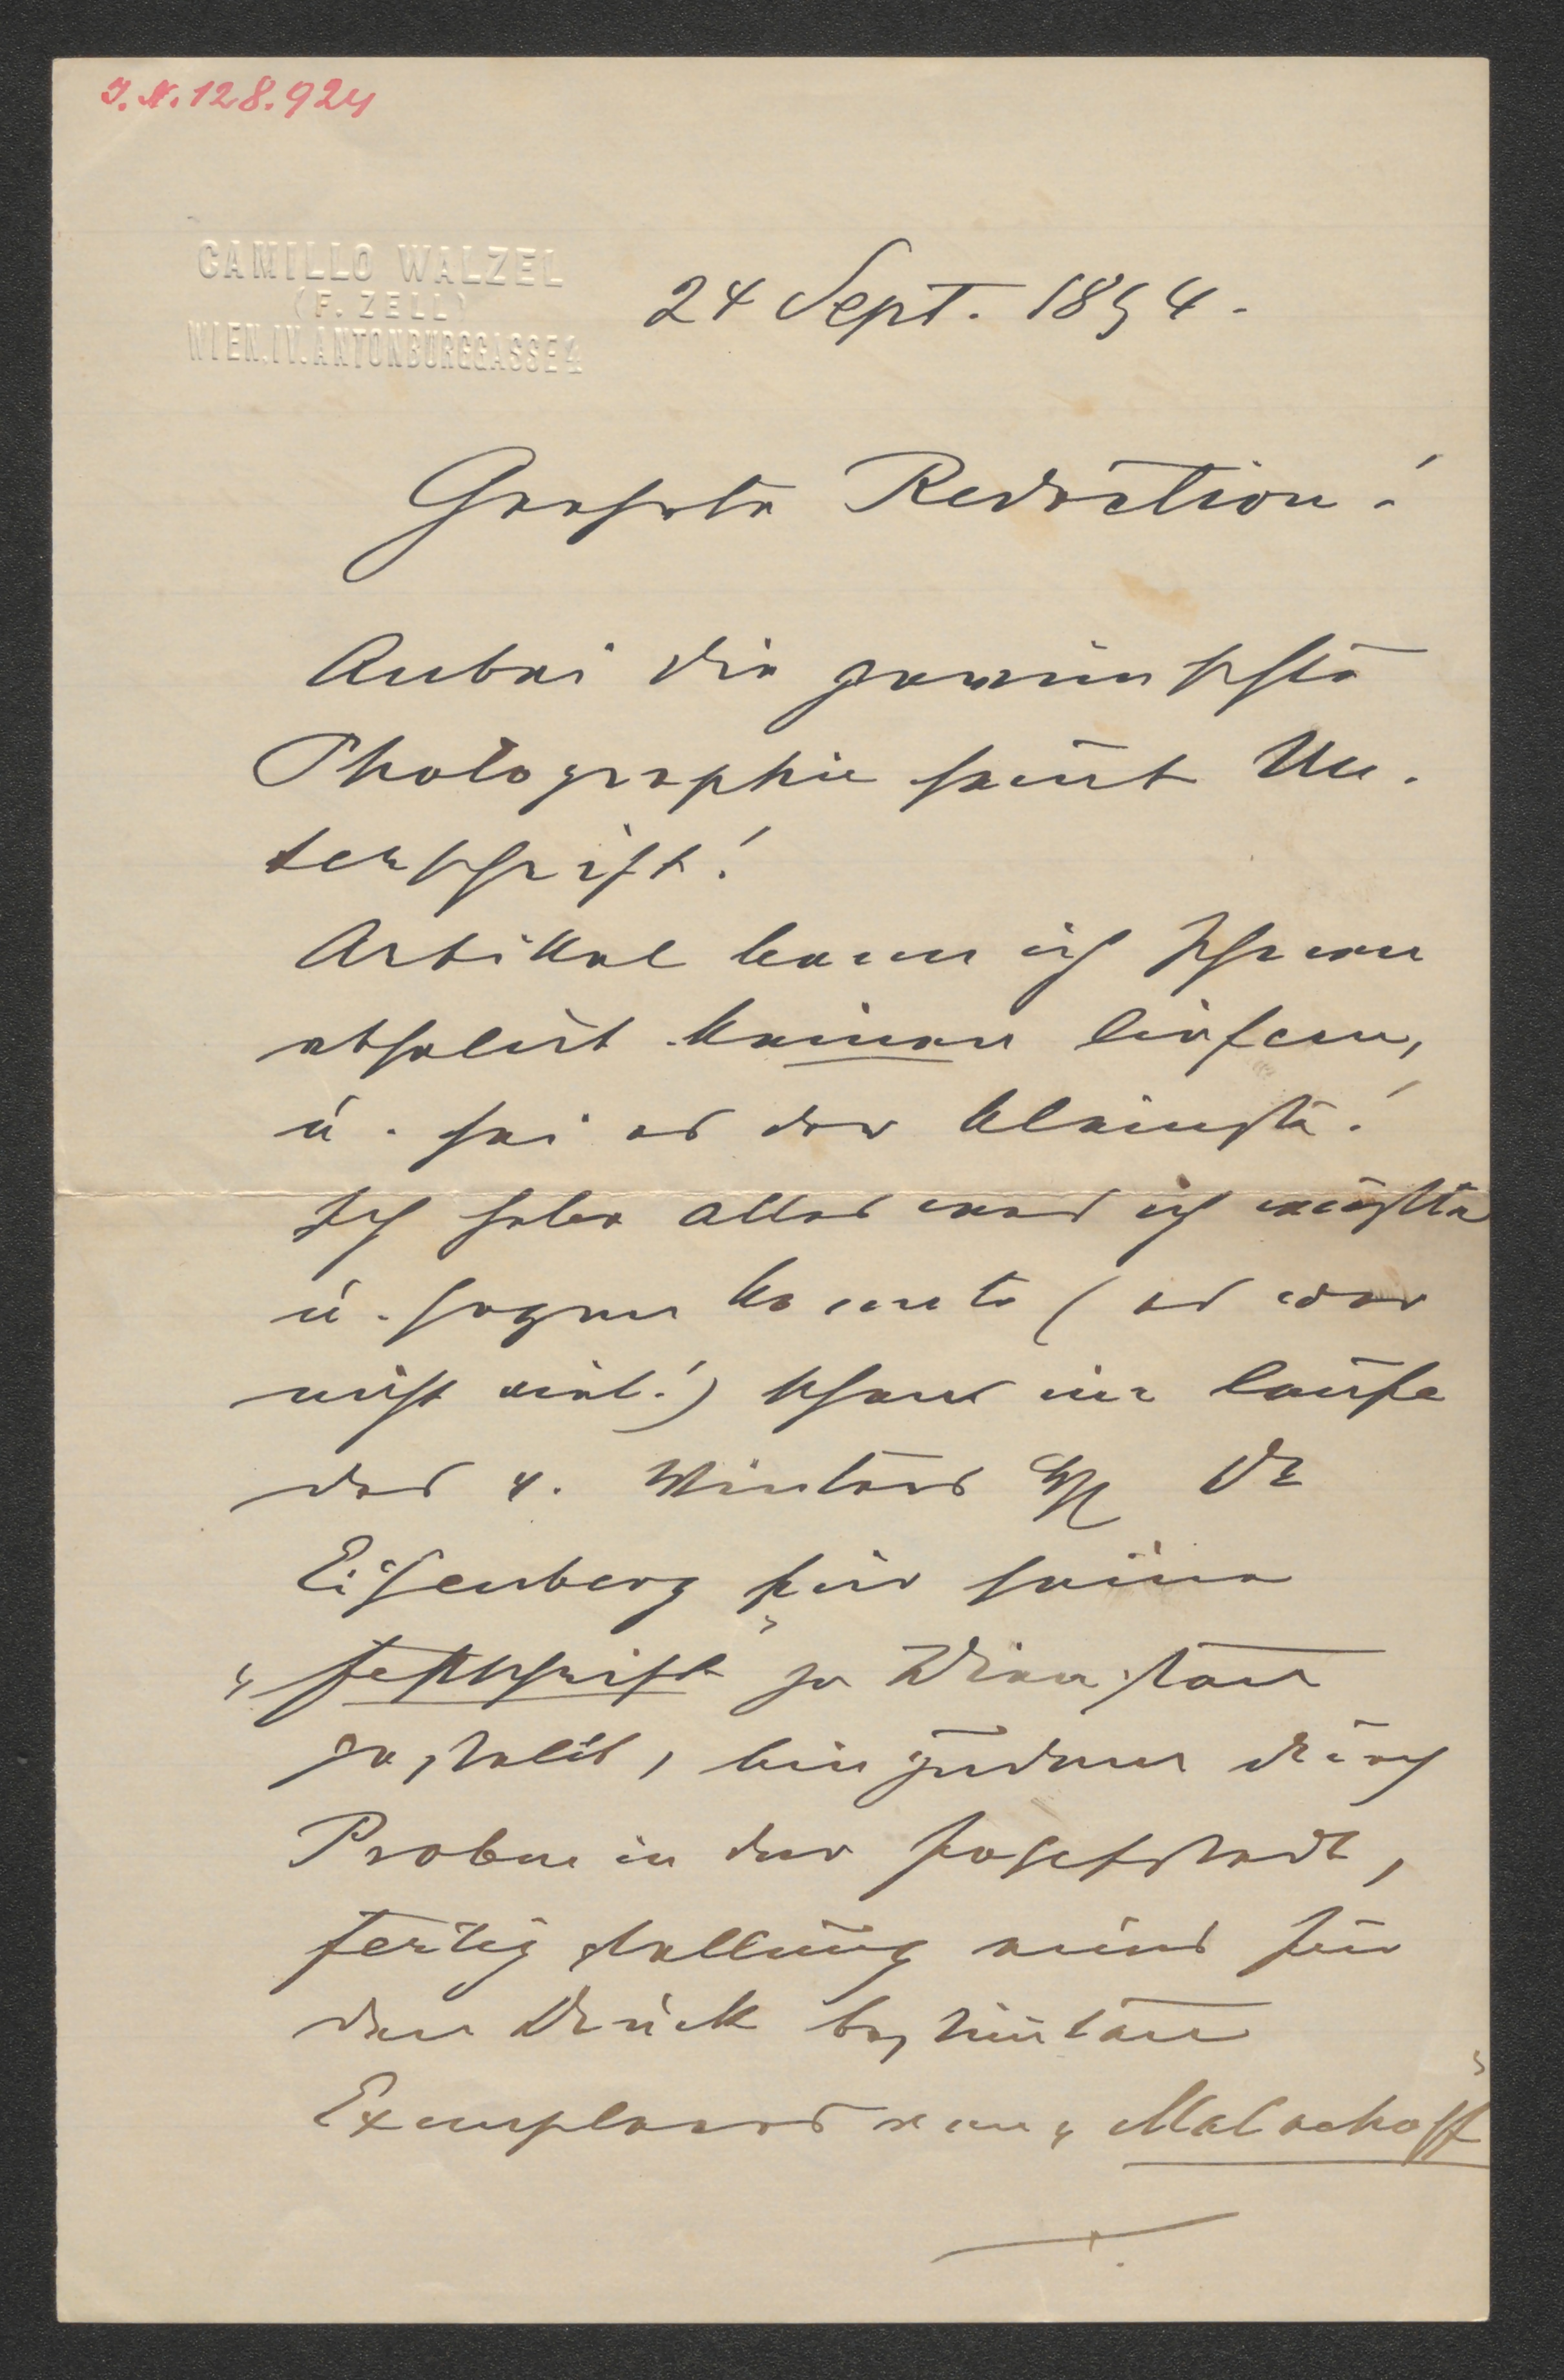 I. N. 128.924
CAMILLO WALZEL
(F. ZELL)
WIEN. IV. ANTONBURGGASSE 4
24 Sept. 1894.
Geehrte Redaction!
Anbei die gewünschte
Photographie samt Un-
terschrift!
Artikel kann ich Ihnen
absolut keinen liefern,
u. sei es der kleinste!
Ich habe alles was ich wußte
u. sagen konnte (es war
nicht viel!) schon im laufe
des v. Winters H Dr
Eisenberg für seine
„Festschrift“ zu Diensten
gestellt, bin zudem durch
Proben in der Josefstadt,
Fertigstellung eines für
den Druck bestimmten
Exemplares von „Malachoff“